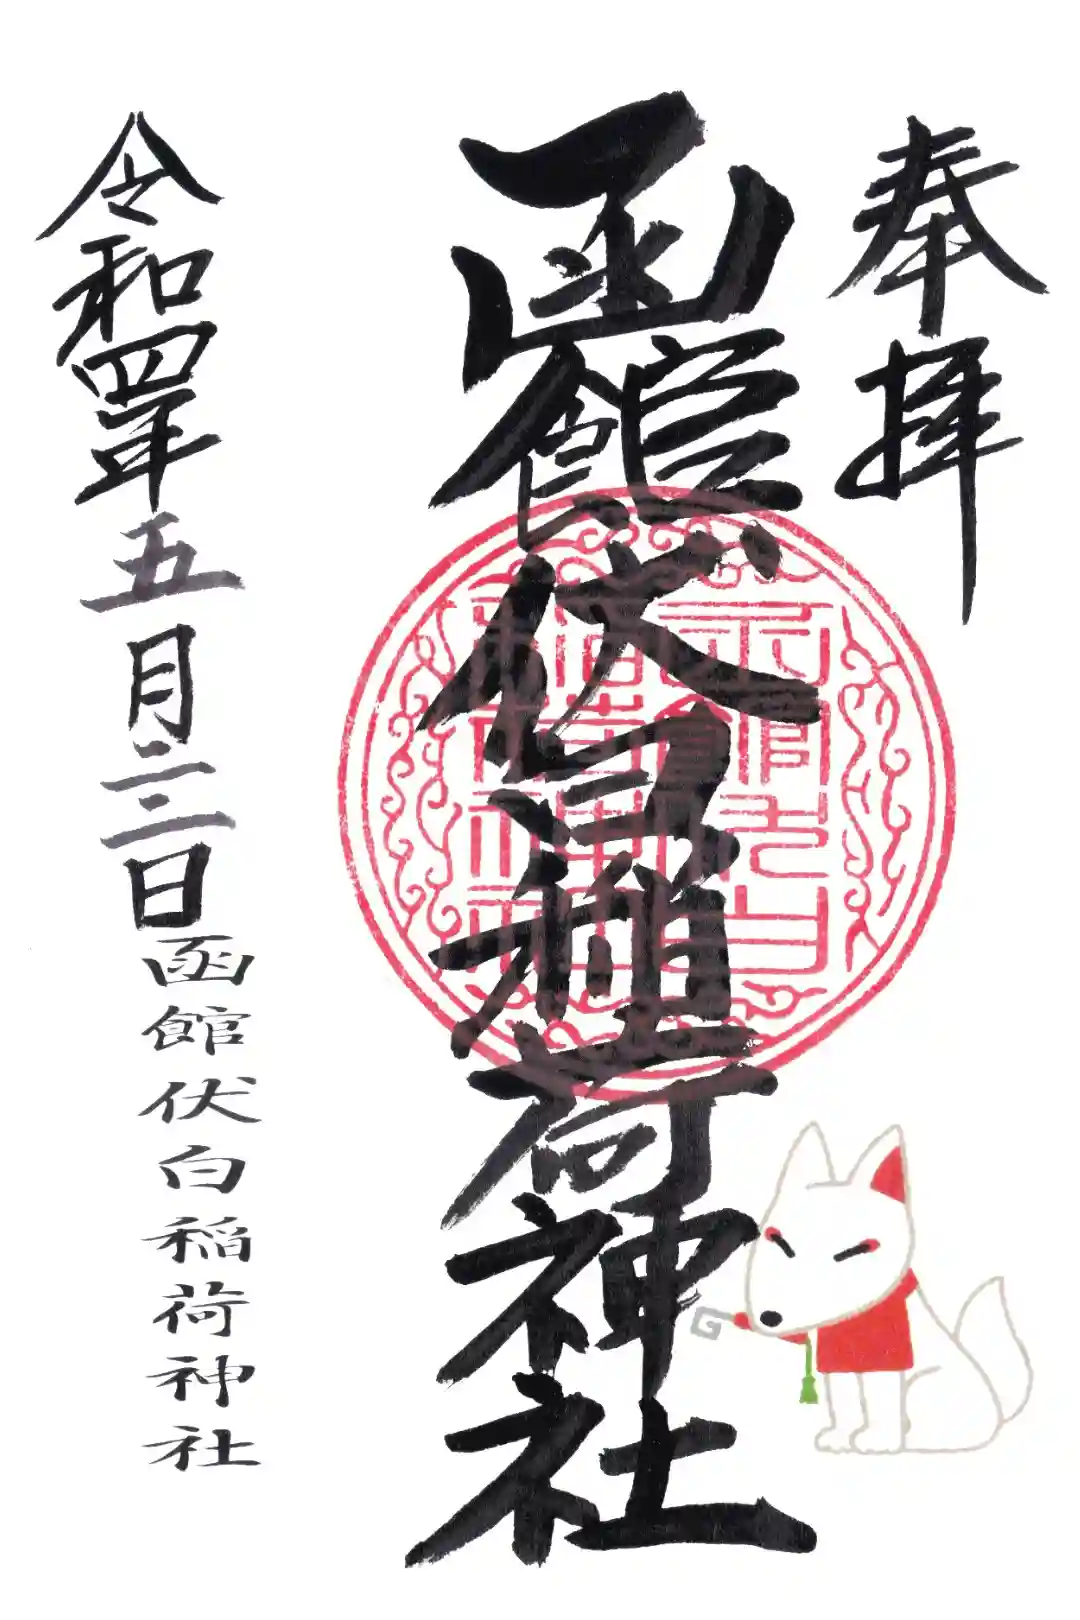 奉拝
函館伏白稲荷神社
令和四年五月二二日
函館伏白稲荷神社